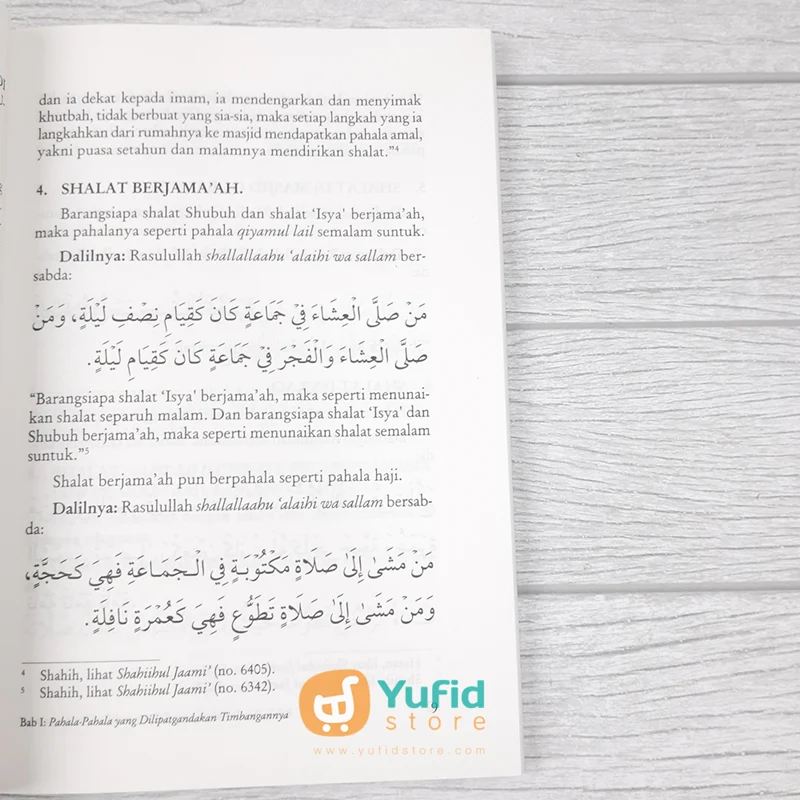 dan ia dekat kepada imam, ia mendengarkan dan menyimak
khutbah, tidak berbuat yang sia-sia, maka setiap langkah yang ia
langkahkan dari rumahnya ke masjid mendapatkan pahala amal,
yakni puasa setahun dan malamnya mendirikan shalat.”⁴
4. SHALAT BERJAMA’AH.
Barangsiapa shalat Shubuh dan shalat ‘Isya' berjama’ah,
maka pahalanya seperti pahala qiyamul lail semalam suntuk.
Dalilnya: Rasulullah shallallaahu ‘alaihi wa sallam ber-
sabda:
مَنْ صَلَّى الْعِشَاءَ فِيْ جَمَاعَةٍ كَانَ كَقِيَامِ نِصْفِ لَيْلَةٍ، وَمَنْ
صَلَّى الْعِشَاءَ وَالْفَجْرَ فِيْ جَمَاعَةٍ كَانَ كَقِيَامِ لَيْلَةٍ.
“Barangsiapa shalat ‘Isya' berjama’ah, maka seperti menunai-
kan shalat separuh malam. Dan barangsiapa shalat ‘Isya' dan
Shubuh berjama’ah, maka seperti menunaikan shalat semalam
suntuk.”⁵
Shalat berjama’ah pun berpahala seperti pahala haji.
Dalilnya: Rasulullah shallallaahu ‘alaihi wa sallam bersab-
da:
مَنْ مَشَىٰ إِلَىٰ صَلَاةٍ مَكْتُوْبَةٍ فِي الْجَمَاعَةِ فَهِيَ كَحَجَّةٍ،
وَمَنْ مَشَىٰ إِلَىٰ صَلَاةٍ تَطَوُّعٍ فَهِيَ كَعُمْرَةٍ نَافِلَةٍ.
⁴ Shahih, lihat Shahiihul Jaami’ (no. 6405).
⁵ Shahih, lihat Shahiihul Jaami’ (no. 6342).
Bab I: Pahala-Pahala yang Dilipatgandakan Timbangannya
9
Yufid
store
www.yufidstore.com